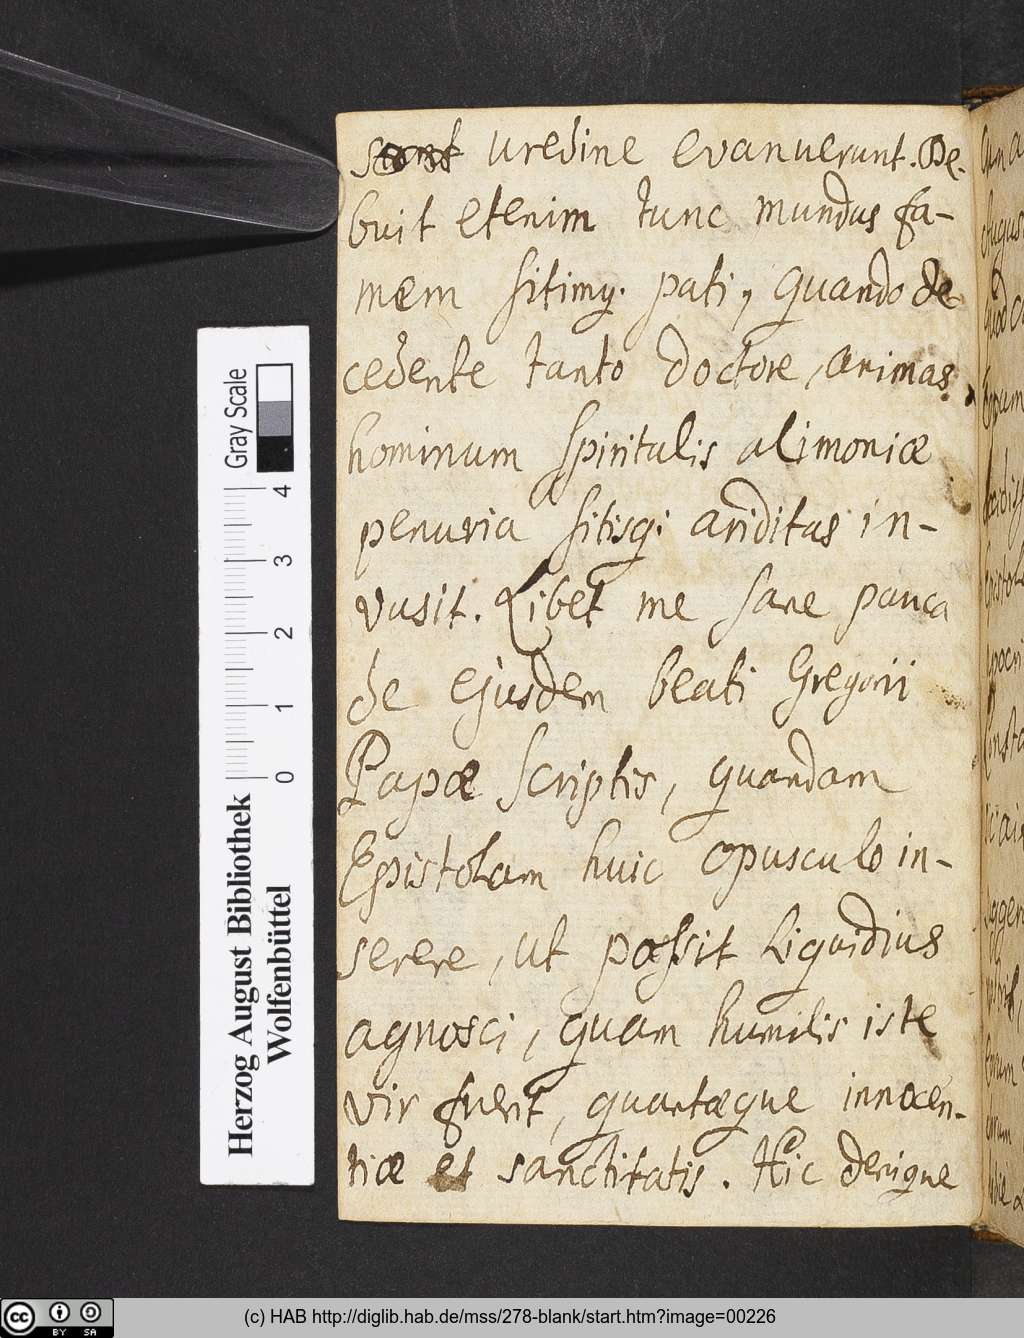 uredine evanuerunt. De-
buit etenim tunc mundus fa-
mem sitimq. pati, quando de
cedente tanto doctore, animas
hominum spiritalis alimoniæ
penuria sitisq: ariditas in-
vasit. Libet me sane pauca
de ejusdem beati Gregorii
Papæ scriptis, quandam
Epistolam huic opusculo in-
serere, ut possit liquidius
agnosci, quam humilis iste
vir fuerit, quantæque innocen-
tiæ et sanctitatis. Hic denique
Gray Scale
4
3
2
1
0
Herzog August Bibliothek
Wolfenbüttel
cc BY SA
(c) HAB http://diglib.hab.de/mss/278-blank/start.htm?image=00226